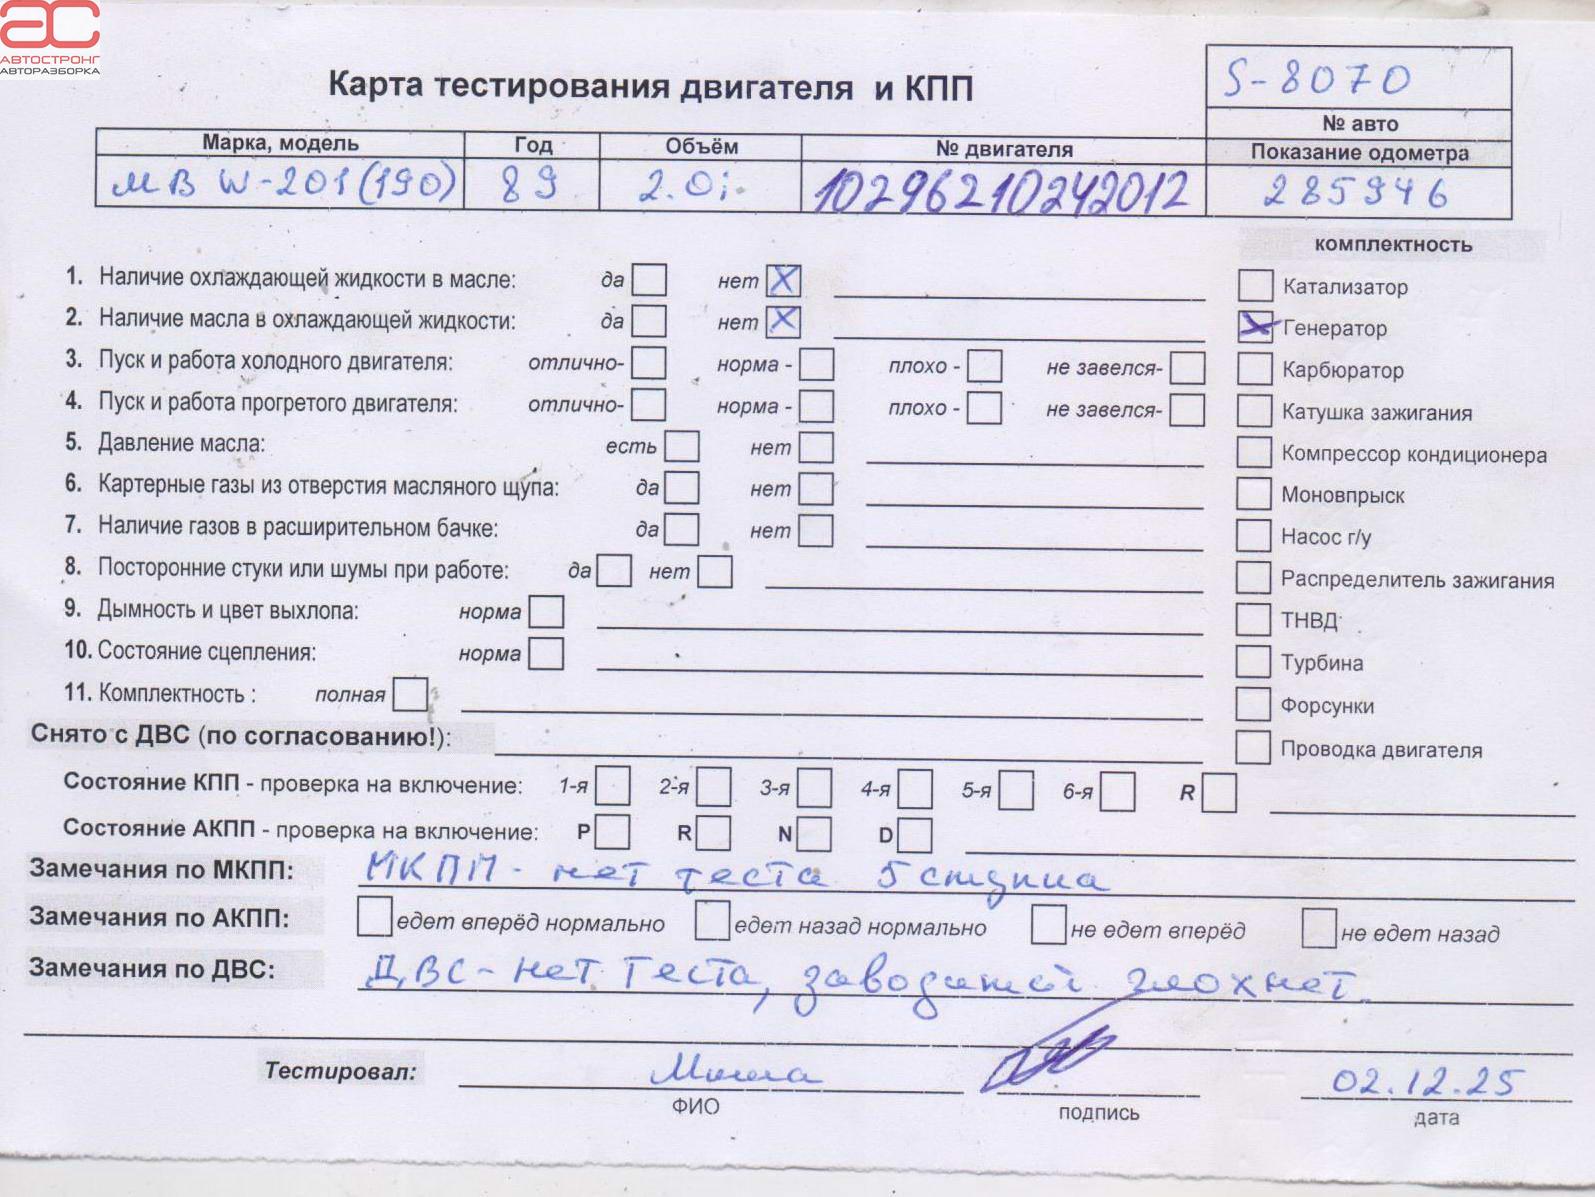 АВТОСТРОНГ
АВТОРАЗБОРКА
Карта тестирования двигателя и КПП
S-8070
№ авто
Марка, модель Год Объём № двигателя Показание одометра
МВ W-201 (190) 89 2.0i 10296210242012 285946
комплектность
1. Наличие охлаждающей жидкости в масле: да нет X
Катализатор
2. Наличие масла в охлаждающей жидкости: да нет X
Генератор
3. Пуск и работа холодного двигателя: отлично- норма - плохо - не завелся-
Карбюратор
4. Пуск и работа прогретого двигателя: отлично- норма - плохо - не завелся-
Катушка зажигания
5. Давление масла: есть нет
Компрессор кондиционера
6. Картерные газы из отверстия масляного щупа: да нет
Моновпрыск
7. Наличие газов в расширительном бачке: да нет
Насос г/у
8. Посторонние стуки или шумы при работе: да нет
Распределитель зажигания
9. Дымность и цвет выхлопа: норма
ТНВД
10. Состояние сцепления: норма
Турбина
11. Комплектность : полная
Форсунки
Снято с ДВС (по согласованию!):
Проводка двигателя
Состояние КПП - проверка на включение: 1-я 2-я 3-я 4-я 5-я 6-я R
Состояние АКПП - проверка на включение: P R N D
Замечания по МКПП: МКПП - нет теста 5 ступка
Замечания по АКПП: едет вперёд нормально едет назад нормально не едет вперёд не едет назад
Замечания по ДВС: ДВС - нет теста, глохнет.
Тестировал: Миша 02.12.25
ФИО подпись дата